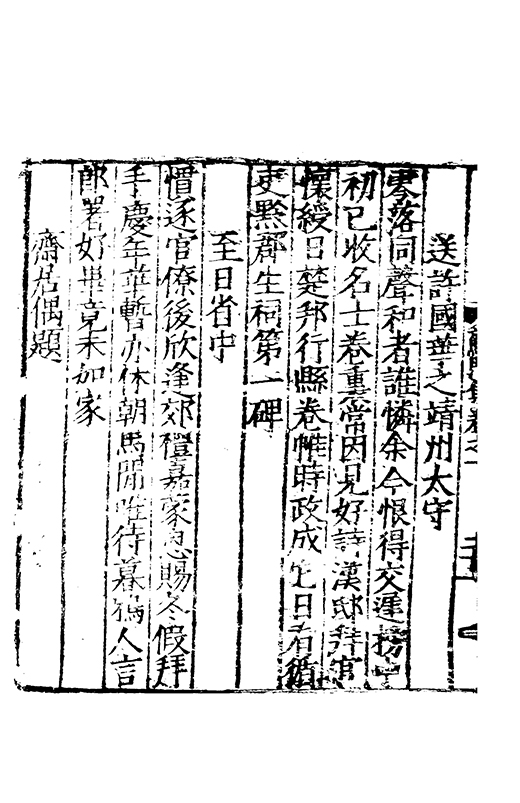 送許國華之靖州太守
零落同聲和者誰憐余今恨得交遲榜中
初已收名士卷裏常因見好詩漢邸拜官
懷綬日楚邦行縣卷帷時政成他日看循
吏黔郡生祠第一碑
至日省中
慣逐官僚後欣逢郊禮嘉蒙恩賜冬假拜
手慶年華暫亦休朝馬閒唯待暮鴉人言
郎署好畢竟未如家
齋居偶題